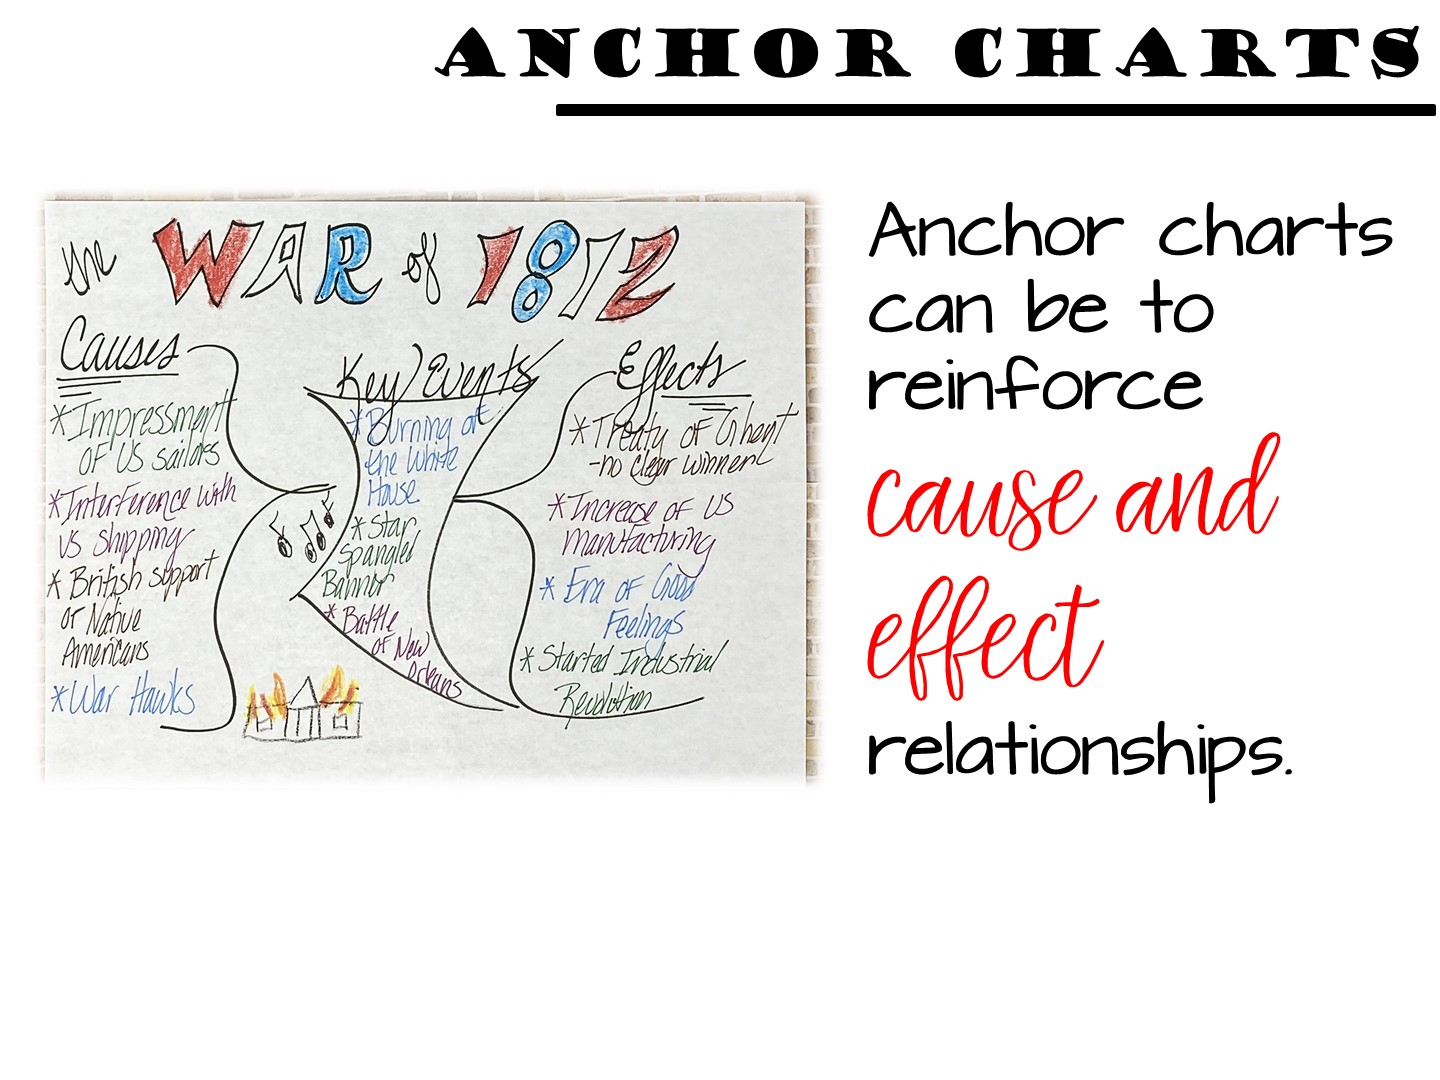 ANCHOR CHARTS
the WAR of 1812
Causes
* Impressment
of US sailors
* Interference with
US shipping
* British support
of Native
Americans
* War Hawks
Key Events
* Burning of
the White
House
* Star
Spangled
Banner
* Battle
of New
Orleans
Effects
* Treaty of Ghent
-no clear winner
* Increase of US
manufacturing
* Era of Good
Feelings
* Started Industrial
Revolution
Anchor charts
can be to
reinforce
cause and
effect
relationships.